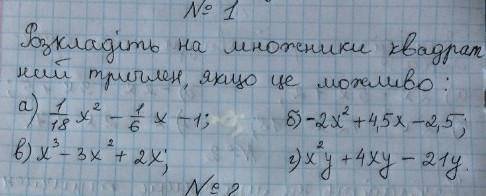 № 1
Розкладіть на множники квадрат
ний тричлен, якщо це можливо:
а) 1/18 x² - 1/6 x - 1; б) -2x² + 4,5x - 2,5;
в) x³ - 3x² + 2x; г) x²y + 4xy - 21y.
№ 2